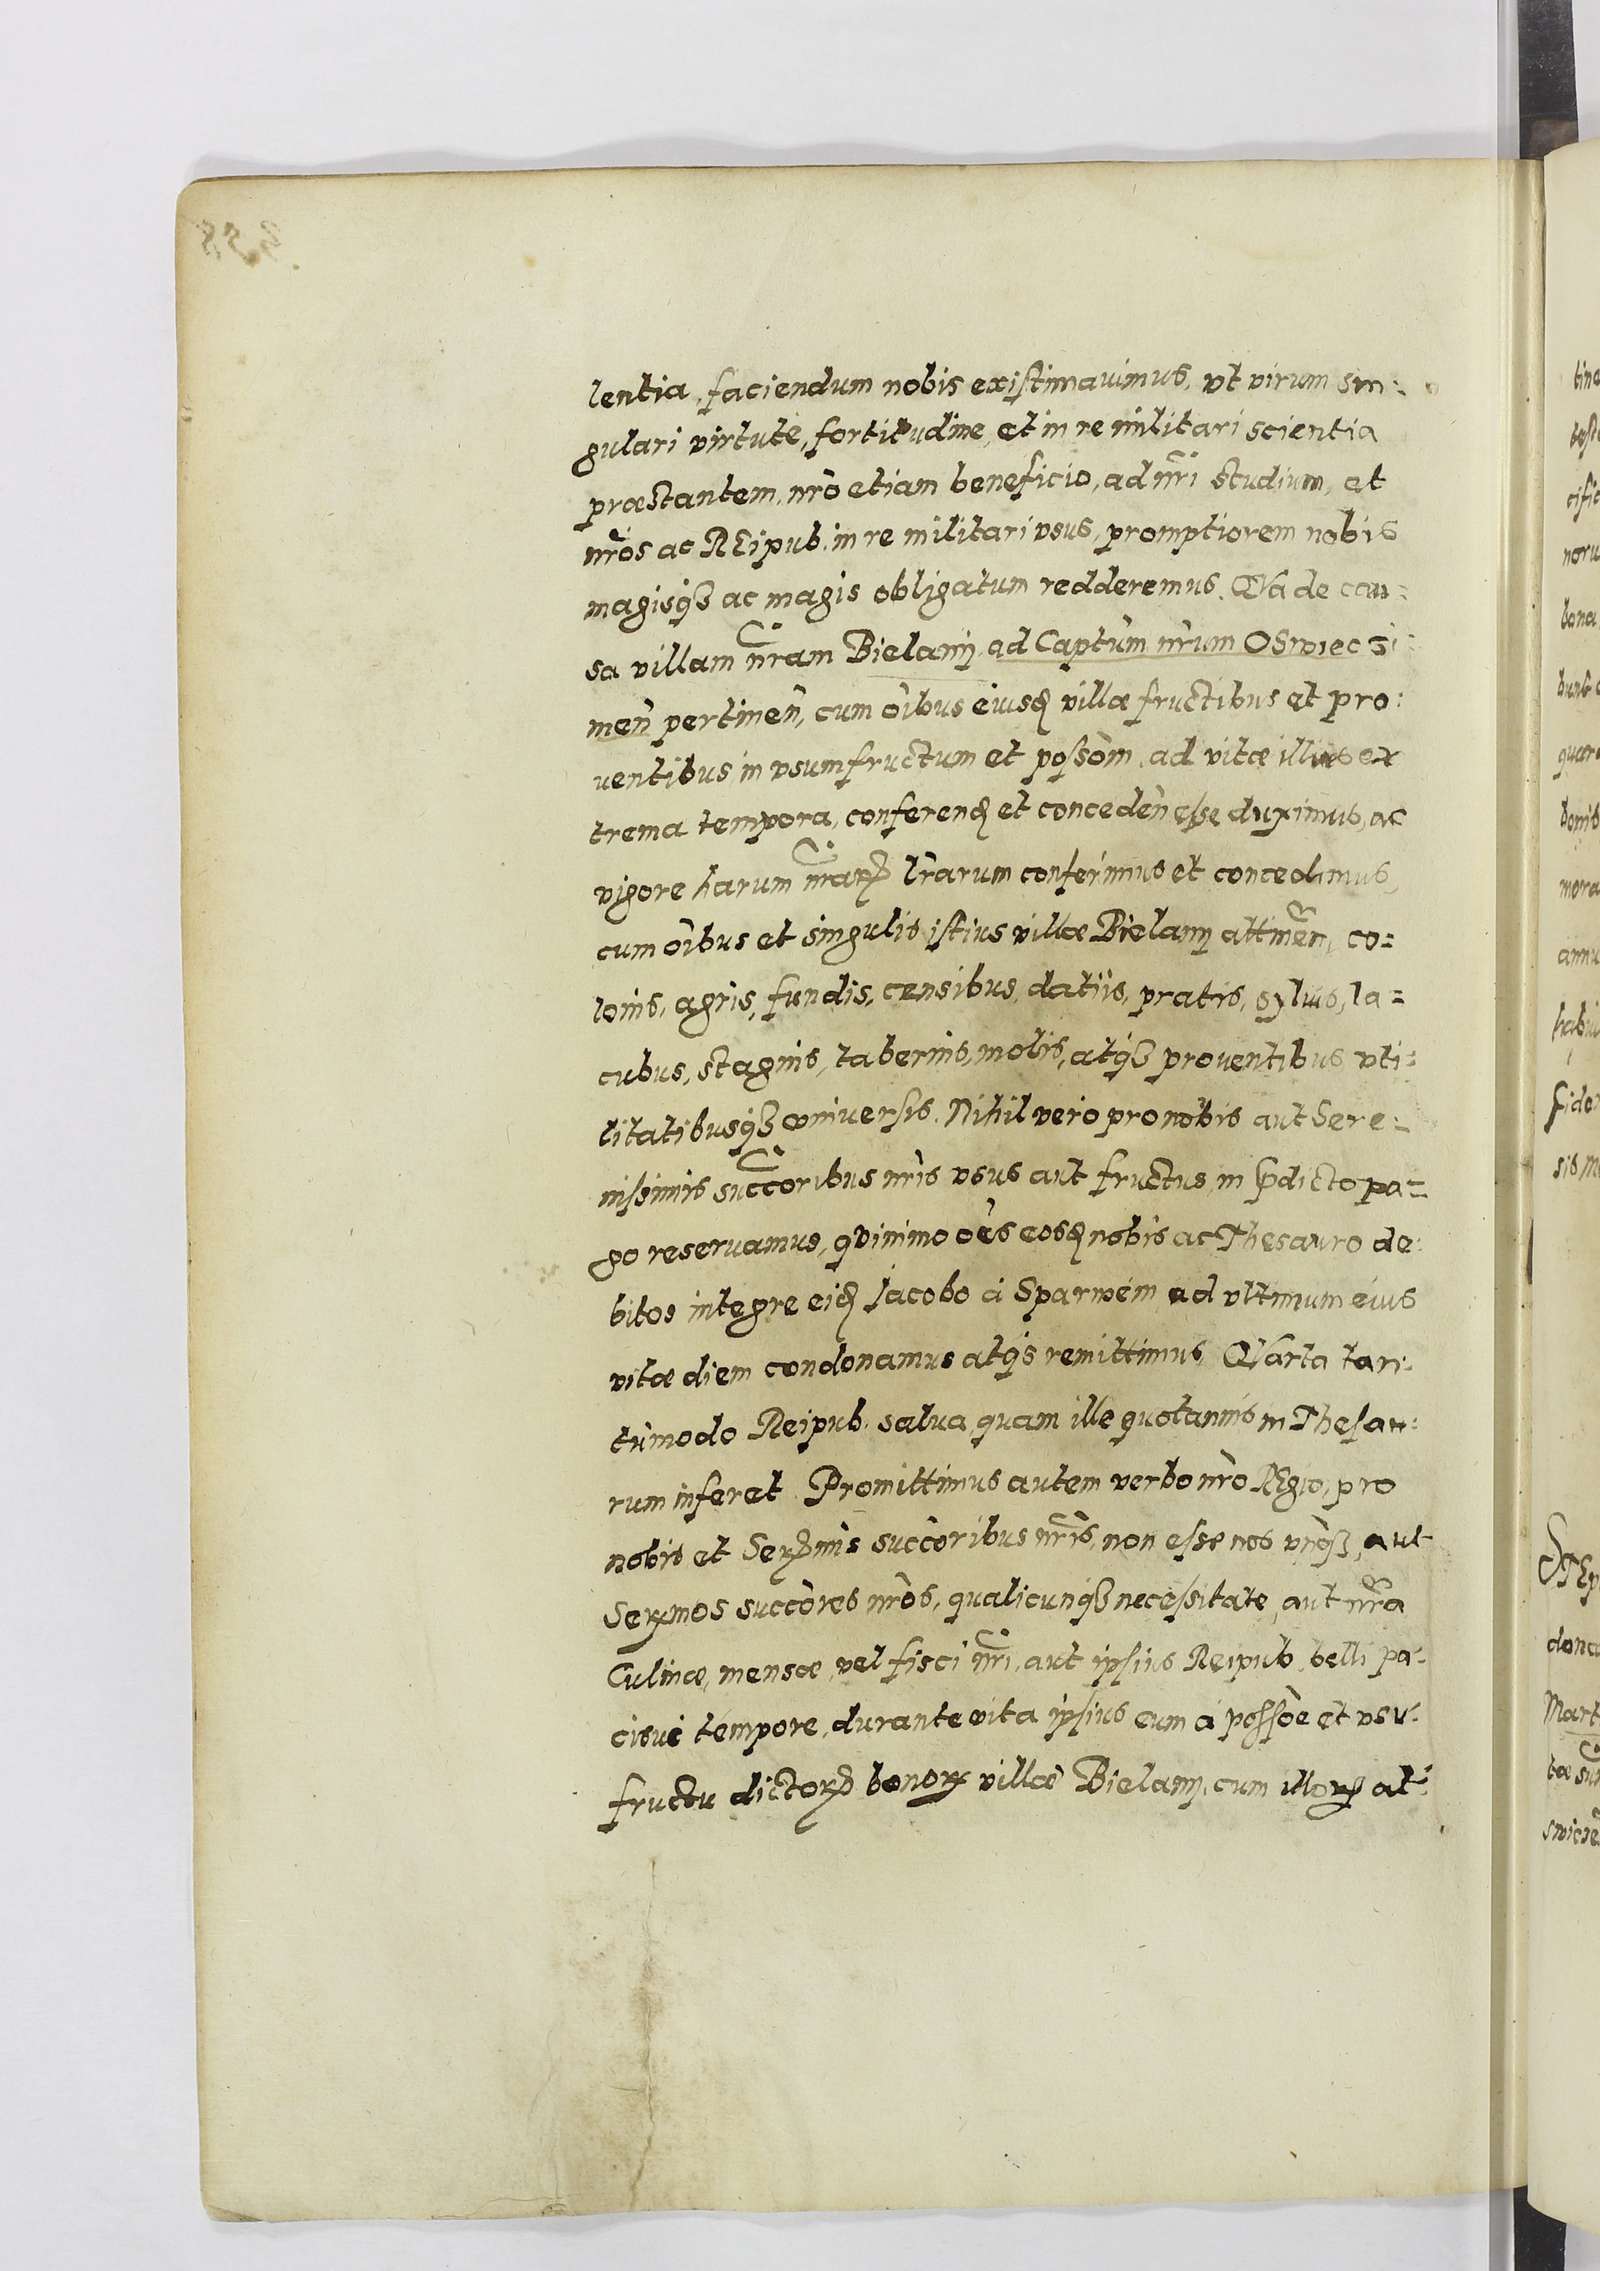 lentia, faciendum nobis existimauimus, vt virum sin:
gulari virtute, fortitudine, et in re militari scientia
præstantem, nr̃o etiam beneficio, ad nr̃i studium, et
nr̃os ac REipub. in re militari vsus, promptiorem nobis
magisqꝫ ac magis obligatum redderemus. QVa de cau:
sa villam nr̃am Bielanÿ, ad Captum nr̃um OSwieczi:
men̄ pertinen̄, cum oĩbus eiusd villæ fructibus et pro:
uentibus, in vsumfructum et poßom, ad vitæ illius ex
trema tempora, conferend et conceden̄ eße duximus, ac
vigore harum nr̃aꝝ lr̃arum conferimus et concedimus,
cum oĩbus et singulis istius villæ Bielanÿ attinen̄, co=
lonis, agris, fundis, censibus, datiis, pratis, syluis, la=
cubus, stagnis, tabernis, molis, atqꝫ prouentibus vti:
litatibusqꝫ vniuersis. Nihil vero pro nobis aut Sere:
nissimis succõribus nr̃is vsus aut fructus, in p̃dicto pa=
go reseruamus, qVinimo oẽs eosd nobis ac Thesauro de:
bitos integre eid Jacobo à Sparwein ad vltimum eius
vitæ diem condonamus atqꝫ remittimus, QVarta tan:
tũmodo Reipub. salua, quam ille quotannis in Thesau:
rum inferet. Promittimus autem verbo nr̃o REgio, pro
nobis et Serꝫmis succõribus nr̃is, non esse nos aut
Serꝫmos succõres nr̃os, qualicunqꝫ necessitate, aut nr̃a
Culinæ, mensæ, vel fisci nr̃i, aut ipsius Reipub. belli pa:
cisue tempore, durante vita ipsius eum à posseõe et vsu:
fructu dictoꝝ bonoꝝ villæ Bielanÿ, cum illoꝝ at: